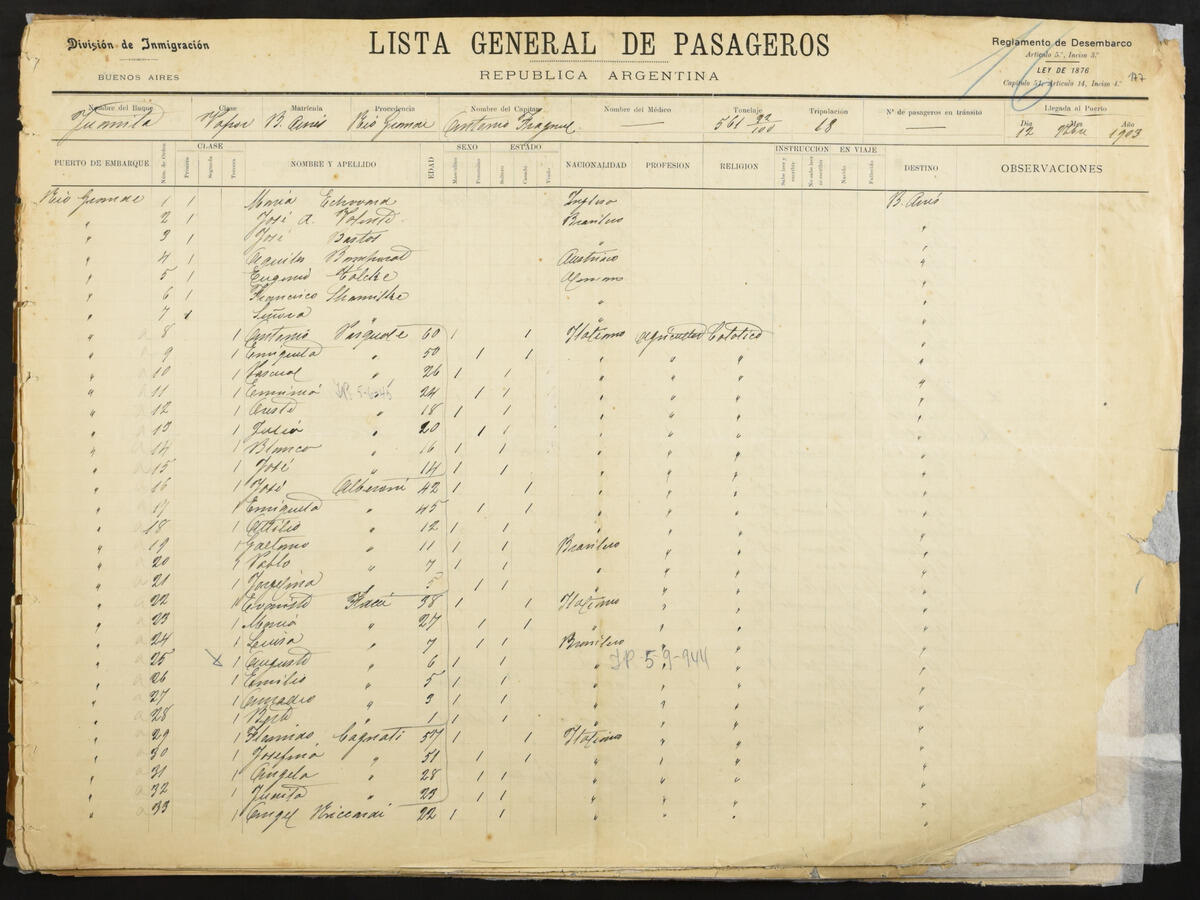 División de Inmigración
BUENOS AIRES
LISTA GENERAL DE PASAGEROS
REPUBLICA ARGENTINA
Reglamento de Desembarco
Artículo 5º, Inciso 3º
LEY DE 1876
Capítulo 5º, Artículo 14, Inciso 4º
177
16
Nombre del Buque Clase Matrícula Procedencia Nombre del Capitán Nombre del Médico Tonelaje Tripulación Nº de pasageros en tránsito Llegada al Puerto
Día Mes Año
Juanita Vapor B. Aires Rio Grande Antonio — 561 92/100 18 — 12 9bre 1903
PUERTO DE EMBARQUE Núm. de Orden CLASE Primera Segunda Tercera NOMBRE Y APELLIDO EDAD SEXO Masculino Femenino ESTADO Soltero Casado Viudo NACIONALIDAD PROFESION RELIGION INSTRUCCION Sabe leer y escribir No sabe leer ni escribir EN VIAJE Nacido Fallecido DESTINO OBSERVACIONES
Rio Grande 1 1 Maria Ingleso B. Aires
" 2 1 José A. Brasilero "
" 3 1 José Bastos " "
" 4 1 Aquiles Austriaco "
" 5 1 Eugenio Aleman "
" 6 1 Francisco " "
" 7 1 Señora " "
" 8 1 Antonio Pasquale 60 1 1 Italiano Agricultor Catolico "
" 9 1 Enriqueta " 50 1 1 " " " "
" 10 1 Pascual " 26 1 1 " " " "
" 11 1 JP. 5-6-45 24 1 1 " " " "
" 12 1 " 18 1 1 " " " "
" 13 1 Julia " 20 1 1 " " " "
" 14 1 Blanco " 16 1 1 " " " "
" 15 1 José " 14 1 1 " " " "
" 16 1 José Alberoni 42 1 1 " " " "
" 17 1 Enriqueta " 45 1 1 " " " "
" 18 1 Attilio " 12 1 1 " " " "
" 19 1 Gaetano " 11 1 1 Brasilero " " "
" 20 1 Pablo " 7 1 1 " " " "
" 21 1 Josefina " 5 1 1 " " " "
" 22 1 Evaristo 38 1 1 Italiano " " "
" 23 1 Maria " 27 1 1 " " " "
" 24 1 Luisa " 7 1 1 Brasilero " " "
" 25 X 1 Augusto " 6 1 1 " JP. 5-9-944 " "
" 26 1 Emilio " 5 1 1 " " " "
" 27 1 Amadeo " 3 1 1 " " " "
" 28 1 " 1 1 1 " " " "
" 29 1 Cagnati 57 1 1 Italiano " " "
" 30 1 Josefina " 51 1 1 " " " "
" 31 1 Angela " 28 1 1 " " " "
" 32 1 Juanita " 23 1 1 " " " "
" 33 1 Angel Riccardi 22 1 1 " " " "